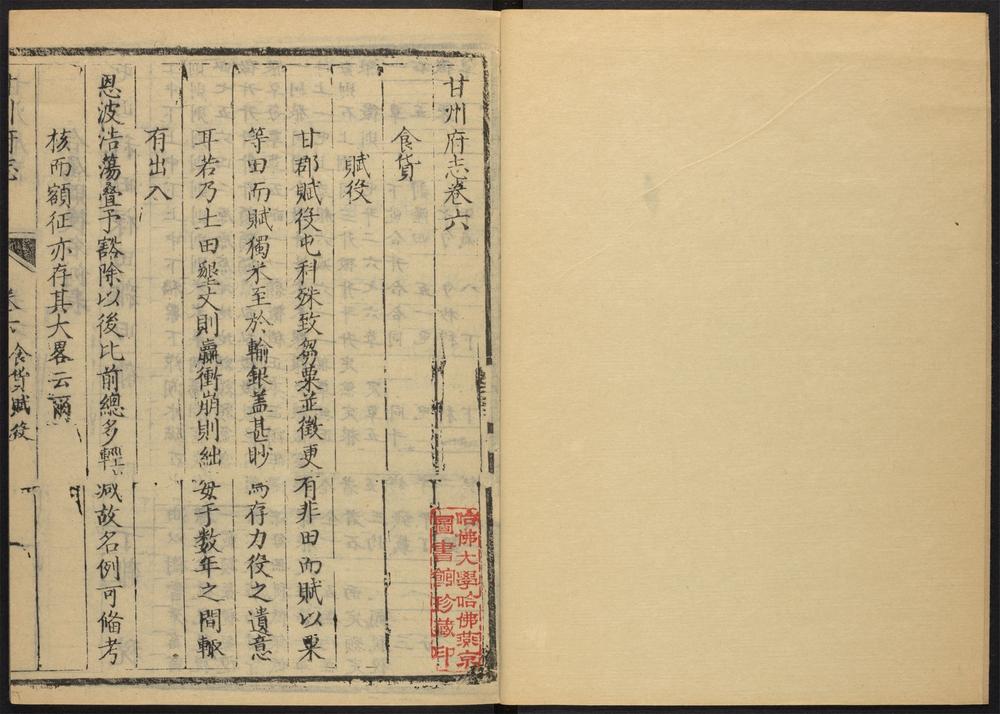 甘州府志卷六
食貨
賦役
甘郡賦役屯科殊致芻粟並徵更有非田而賦以粟
等田而賦獨米至於輸銀盖甚眇焉存力役之遺意
耳若乃士田墾丈則贏衝崩則絀毎于数年之間輙
有出入
恩波浩蕩疊予豁除以後比前總多輕减故名例可偹考
核而額征亦存其大畧云爾
甘州府志
卷六 食貨 賦役
一
哈佛大學哈佛燕京
圖書館珍藏印